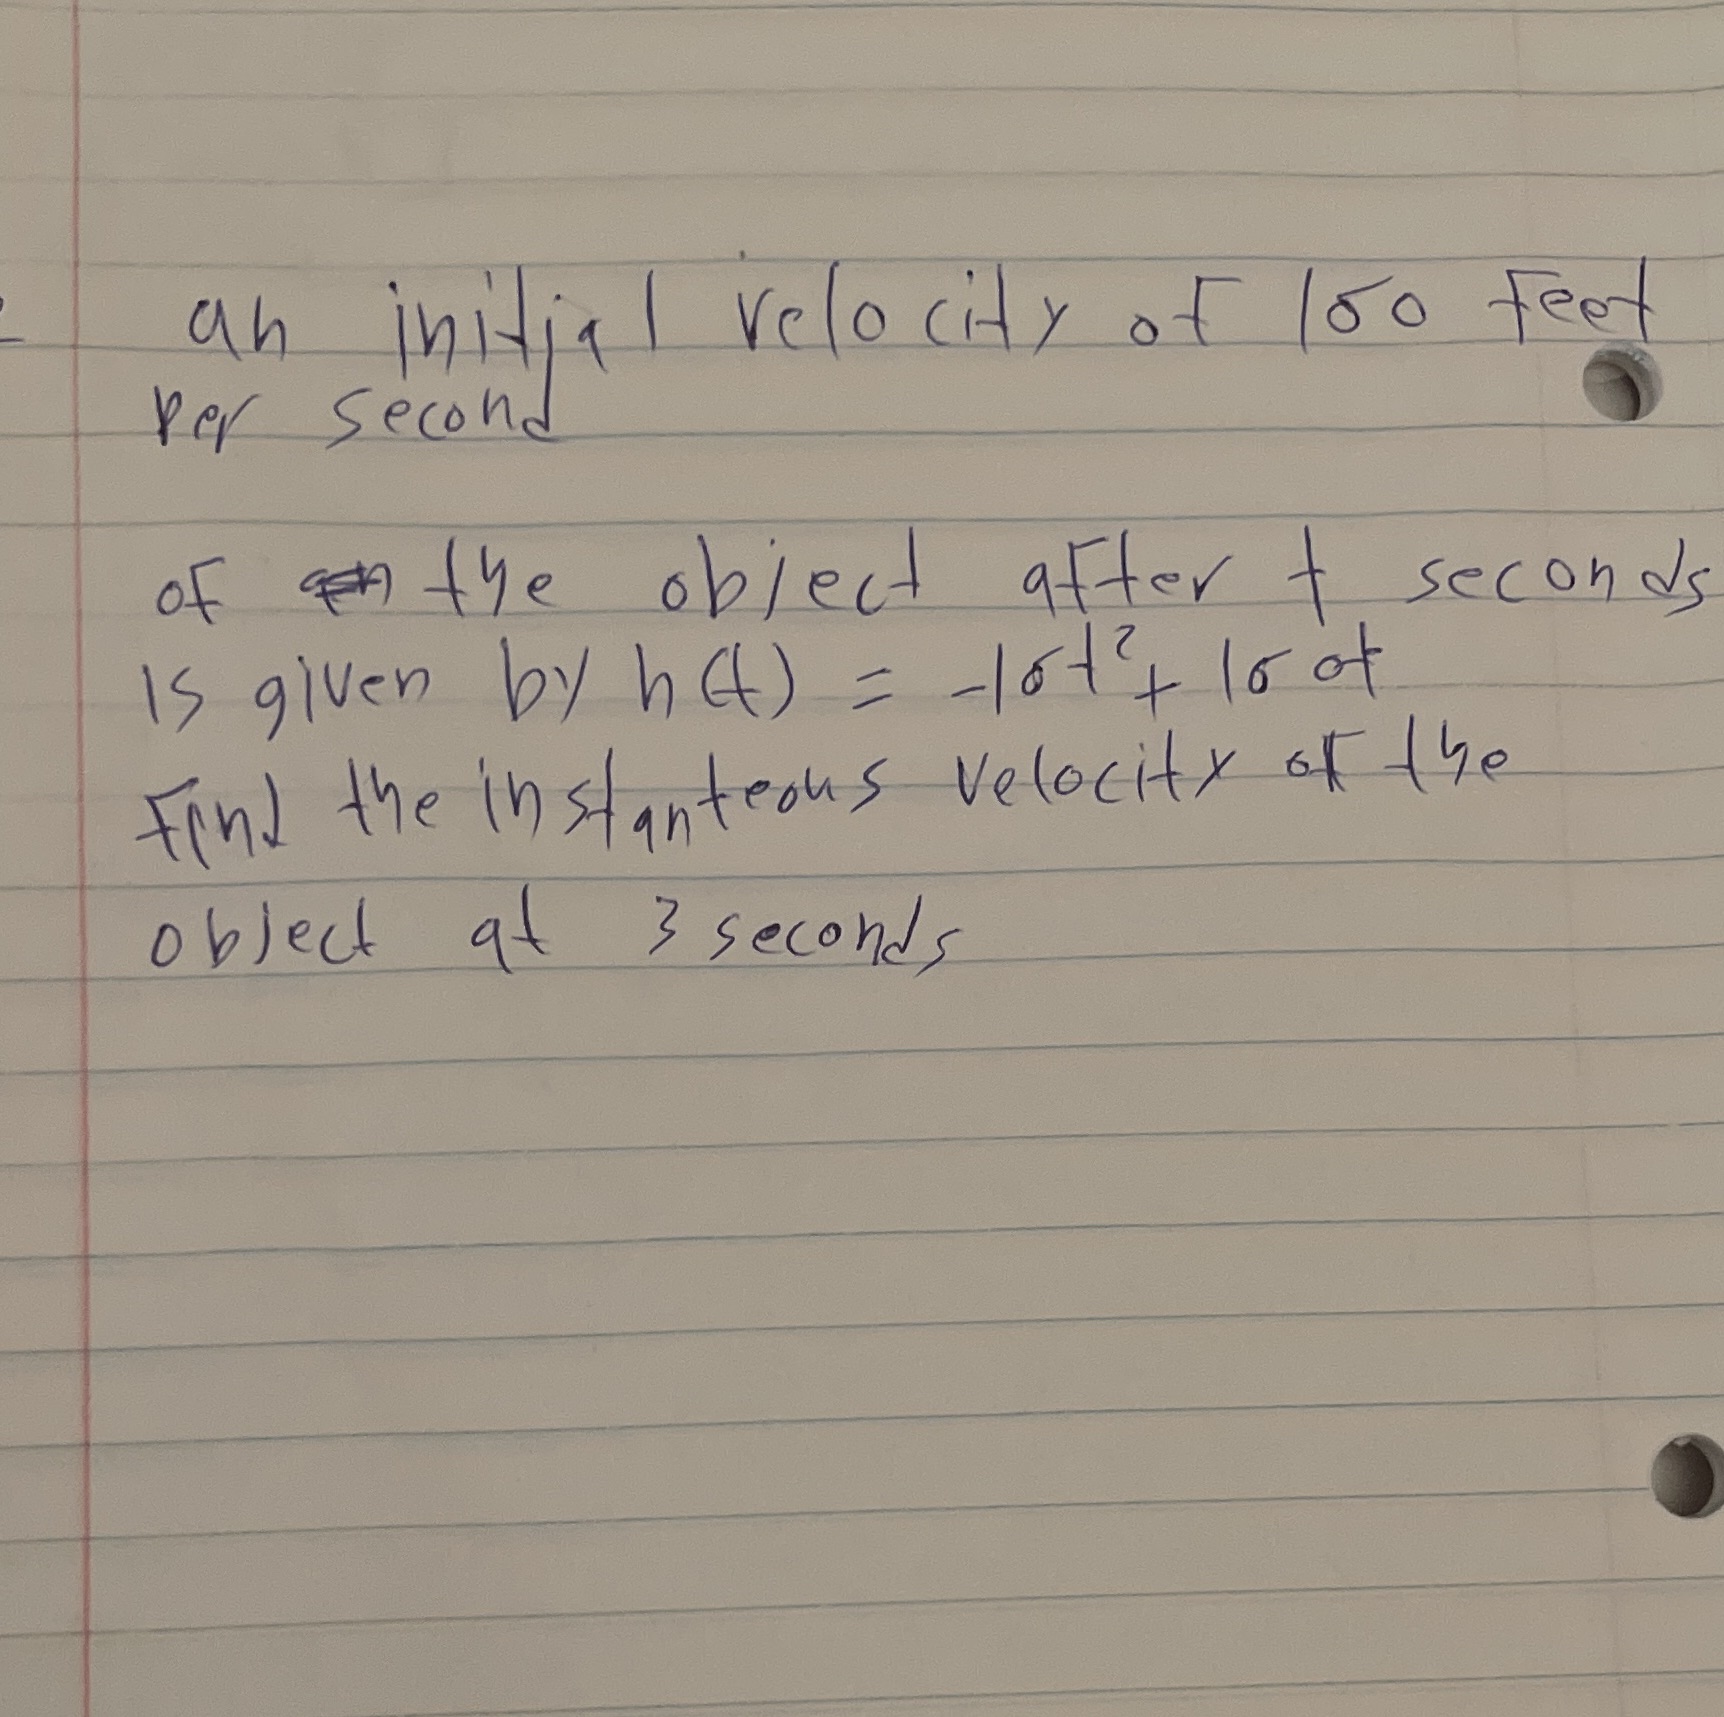 an initial velocity of 100 feet
per second
of the object after t seconds
is given by h(t) = -10t² + 100t
Find the instanteous velocity of the
object at 3 seconds